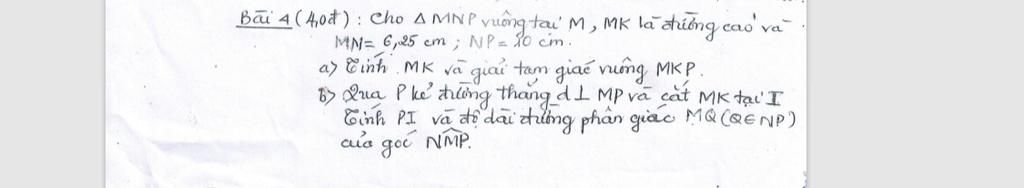 Bài 4 (4,0đ) : Cho Δ MNP vuông tại M, MK là đường cao và
MN = 6,25 cm ; NP = 10 cm.
a) Tính MK và giải tam giác vuông MKP.
b) Qua P kẻ đường thẳng d ⊥ MP và cắt MK tại I
Tính PI và độ dài đường phân giác MQ (Q ∈ NP)
của góc NMP.